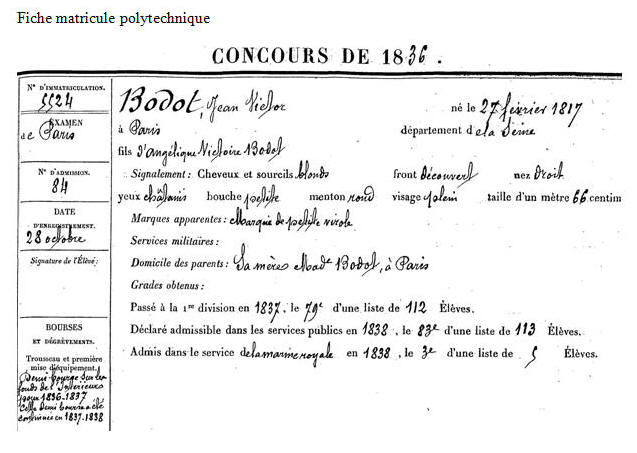 Fiche matricule polytechnique
CONCOURS DE 1836.
N° D'IMMATRICULATION.
5524
EXAMEN
de Paris
N° D'ADMISSION.
84
DATE
D'ENREGISTREMENT.
28 octobre
Signature de l'Élève:
BOURSES
ET DÉGRÈVEMENTS.
Trousseau et première
mise d'équipement.
Demi bourse sur les
fonds de l'Intérieur
pour 1836-1837
Cette demi bourse a été
continuée en 1837-1838
Bodot, Jean Victor né le 27 février 1817
à Paris département de la Seine
fils d'Angélique Victoire Bodot
Signalement: Cheveux et sourcils blonds front découvert nez droit
yeux châtains bouche petite menton rond visage plein taille d'un mètre 66 centim
Marques apparentes: Marque de petite vérole
Services militaires:
Domicile des parents: Sa mère Made Bodot, à Paris
Grades obtenus:
Passé à la 1re division en 1837, le 79e d'une liste de 112 Élèves.
Déclaré admissible dans les services publics en 1838, le 83e d'une liste de 113 Élèves.
Admis dans le service de la marine royale en 1838, le 3e d'une liste de 5 Élèves.